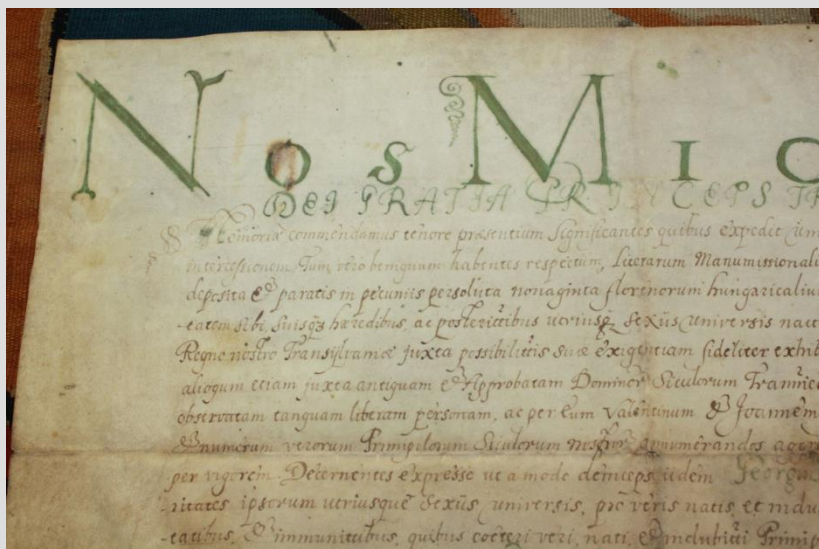 Nos Mic
DEI GRATIA PRINCEPS TR
Memoriæ commendamus tenore præsentium significantes quibus expedit Uni
intercessionem, Tum vero benignum habentes respectum, Literarum Manumissionaliu
deposita & paratis in pecuniis persoluta nonaginta florenorum hungaricaliu
-tatem sibi, suisqz hæredibus, ac posterittibus utriusqz sexus universis nact
Regno nostro Transylvaniæ juxta possibilittis suæ exigentiam fideliter exhib
alioqum etiam juxta antiquam & Approbatam Dominor Siculorum Trannie
observatam tanquam liberam personam, ac per eum Valentinum & Joannem
& numerum verorum Primipilorum Siculorum nostror annumerandos
per vigorem. Decernentes expresse ut a modo deinceps iidem Georgi
-ritates ipsorum utriusque sexus universis, pro veris natis, et indu
-tatibus, & immunitibus, quibus cæteri veri, nati, & indubitti Primip